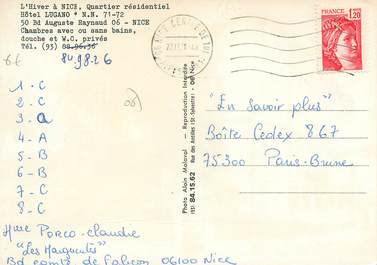 L'Hiver à NICE, Quartier résidentiel
Hôtel LUGANO * N.N. 71-72
50 Bd Auguste Raynaud 06 - NICE
Chambres avec ou sans bains,
douche et W.C. privés
Tél. (93) 88.96.36
84.98.26
1 - C
2 - C
3 - a
4 - A
5 - B
6 - B
7 - C
8 - C
06
Photo Alain Malaval — Reproduction Interdite
(93) 84.15.62 - 06 Nice
FRANCE
1,20
"En savoir plus"
Boîte Cedex 867
75300 Paris-Brune
Mme PORCO-Claudre
"Les Marguerites"
Bd comte de Falicon 06100 Nice